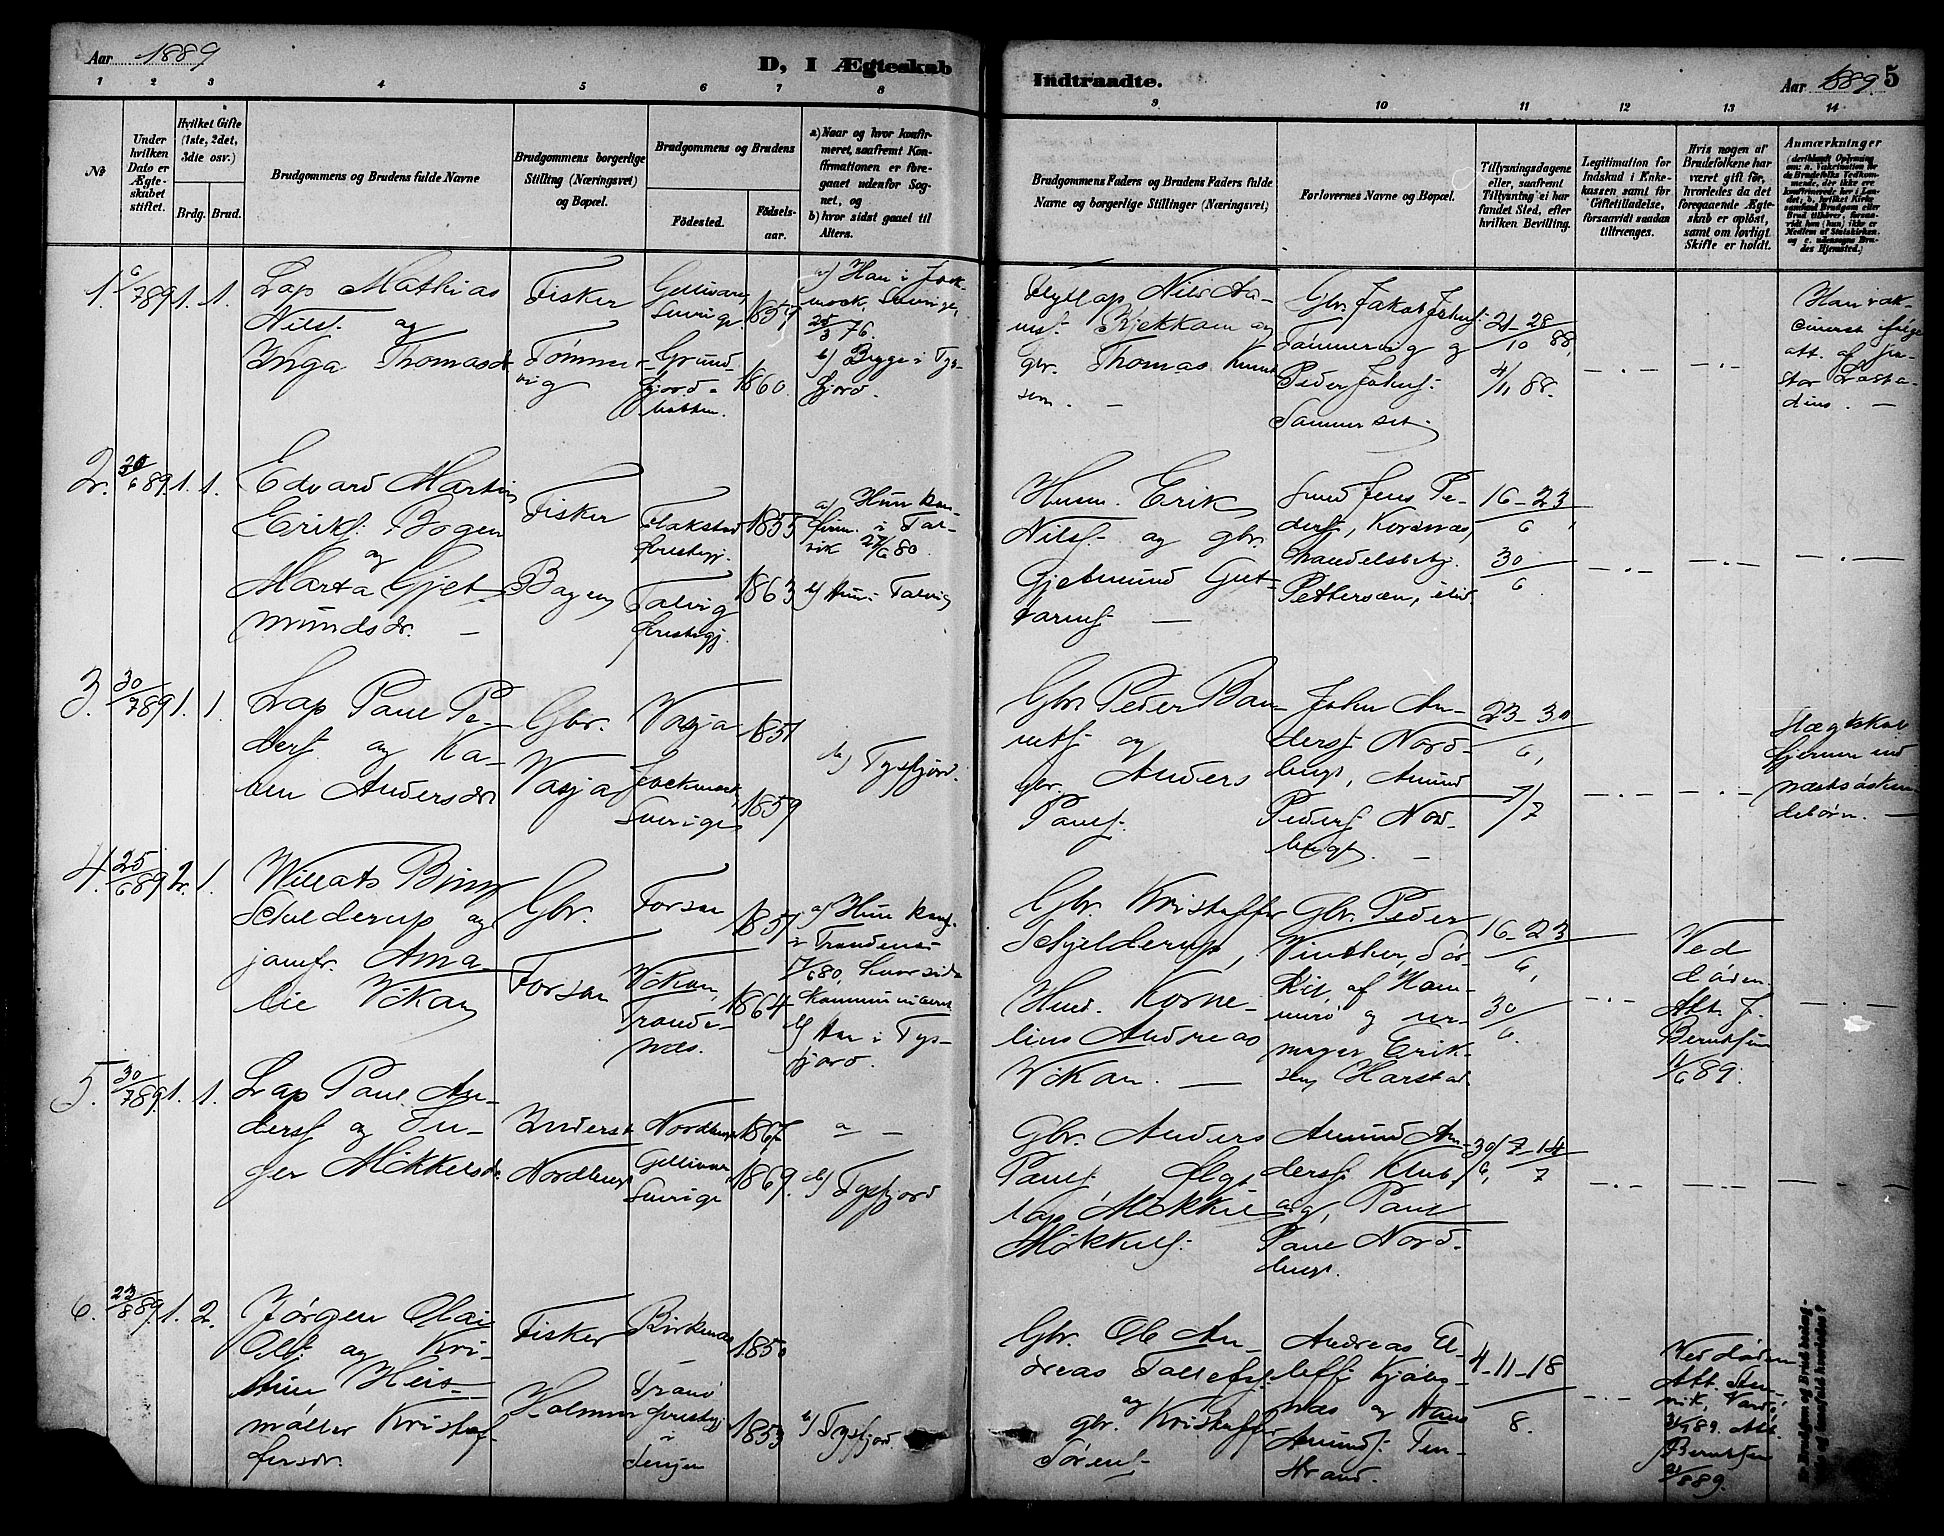 Aar 1889
D, I Ægteskab
Indtraadte.
Aar 1889. 5
1 2 3 4 5 6 7 8
9 10 11 12 13 14
No
Under
hvilken
Dato er
Ægte-
skabet
stiftet.
Hvilket Gifte
(1ste, 2det,
3die osv.)
Brdg. Brud.
Brudgommens og Brudens fulde Navne
Brudgommens borgerlige
Stilling (Næringsvei)
og Bopæl.
Brudgommens og Brudens
Fødested.
Fødsels-
aar.
a) Naar og hvor konfir-
meret, saafremt Kon-
firmationen er fore-
gaaet udenfor Sog-
net, og
b) hvor sidst gaaet til
Alters.
Brudgommens Faders og Brudens Faders fulde
Navne og borgerlige Stillinger (Næringsvei)
Forlovernes Navne og Bopæl.
Tillysningsdagene
eller, saafremt
Tillysning ei har
fundet Sted, efter
hvilken Bevilling.
Legitimation for
Indskud i Enke-
kassen samt for
Giftetilladelse,
forsaavidt saadan
tiltrænges.
Hvis nogen af
Brudefolkene har
været gift før,
hvorledes da det
foregaaende Ægte-
skab er opløst,
samt om lovligt
Skifte er holdt.
Anmærkninger
1. 6/7 89. 1. 1.
Lap Mathias
Nilss. og
Inga Thomasdr
Fisker
Tømmer-
vig
Gellivare
Sverige
Grund-
fjord-
botten.
1857
1860.
a) Han i Jock-
mock, Sverige,
25/3 76.
b) Begge i Tys-
fjord.
Flytlap, Nils An-
Kjekkam og
gbr. Thomas Knud
sen. —
Gbr. Jakob Johns.
Tømmervig og
Peder Johns.
Sommerset.
21-28/10 88,
4/11 88.
Han vak-
cineret ifølge
att. af Pa-
stor Læsta-
dius. —
2. 30/6 89. 1. 1.
Edvard Martin
Eriks. Bogen
og
Marta Gjet-
mundsdr. —
Fisker
Bogen
Flakstad
Præstegj.
Talvig
Præstegj.
1855
1863
a) Hun kon-
firm. i Tal-
vik 27/6 80.
b) Hun i Talvig
Husm. Erik
Nilss. og gbr.
Gjetmund Gut-
torms. —
Jens Pe-
ders, Korsnæs,
handelsbetj.
Pettersen, ibid.
16-23/6,
30/6.
3. 30/7 89. 1. 1.
Lap Paul Pe-
ders. og Ka-
ren Andersdr
Gbr.
Vasja
Vasja
Jockmock,
Sverige
1851
1859
b) Tysfjord.
Gbr. Peder Ban-
og
gbr. Anders
Pauls.
John An-
derss Nord-
bugt, Amund
Peders Nord-
bugt. —
23-30/6,
7/7
Slægtskab
fjernere end
næstsøsken-
debørn. —
4. 25/6 89. 2. 1.
Willats Bing
Schjelderup og
jomfr. Ama-
lie Vikan
Gbr.
Forsaa
Forsaa
Vikan,
Tronde-
næs.
1857
1864
a) Hun konf.
i Trondenæs
17/6 80, hvor sidst
kommuniceret
b) Han i Tys-
fjord.
Gbr. Kristoffer
Schjelderup,
Husm. Korne-
lius Andreas
Vikan. —
Gbr. Peder
Winther, Sør-
kil, af Ham-
merø og ur-
mager Erik-
sen, Harstad.
16-23/6,
30/6.
Ved
døden.
Att. J.
Berntsen
11/6 89.
5. 30/7 89. 1. 1.
Lap Paul An-
derss og In-
ger Mikkelsdr.
Inderst
Nordbugt
Nordbugt
Gellivare
Sverige
1867
1869.
a —
b) Tysfjord
Gbr. Anders
Pauls, flyt
lap, Mikkel
Mikkels.
Amund An-
derss Klub,
og, Paul
Paul Nord-
bugt.
30/6, 7-14/7
6. 23/8 89. 1. 2.
Jørgen Olai
Ols. og Kri-
stine Heis-
møller Kristof-
fersdr.
Fisker
Holmen
Birkenæs
Tranø
Præstegj
i
Senjen
1850
1853
b) Tysfjord
Gbr. Ole An-
dreas Tollefs.
og
gbr. Kristoffer
Sørens.
Andreas El-
leffs. Kjøbs-
næs og Hans
Amunds. Ten-
strand.
4-11-18/8.
Ved døden
Att.
Vardø
89. Att.
Berntsen
21/8 89.